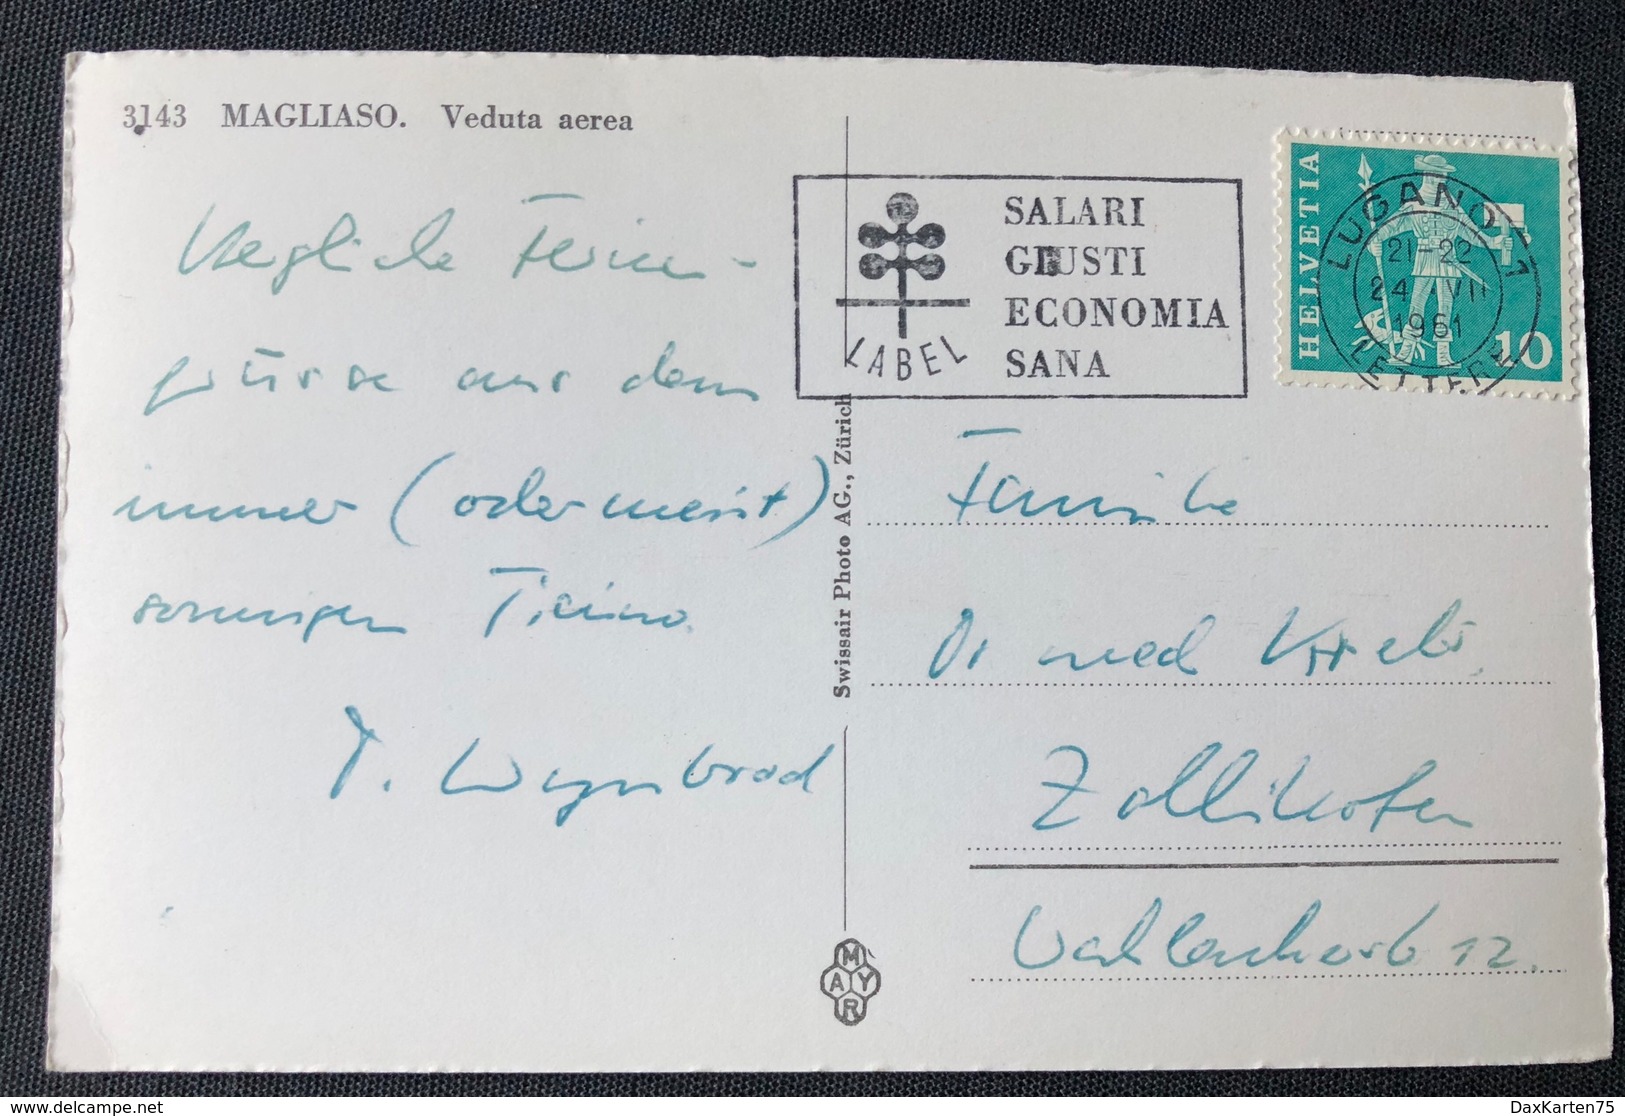 3143 MAGLIASO. Veduta aerea
Herzliche Ferien-
grüsse aus dem
immer (oder meist)
sonnigen Ticino.
Wyssbrod
Swissair Photo AG., Zürich
MAYR
LABEL
SALARI
GIUSTI
ECONOMIA
SANA
HELVETIA
10
LUGANO 1
21-22
24.VII
1961
LETTERE
Familie
Dr med Krebs,
Zollikofen
12.
delcampe.net
DaxKarten75